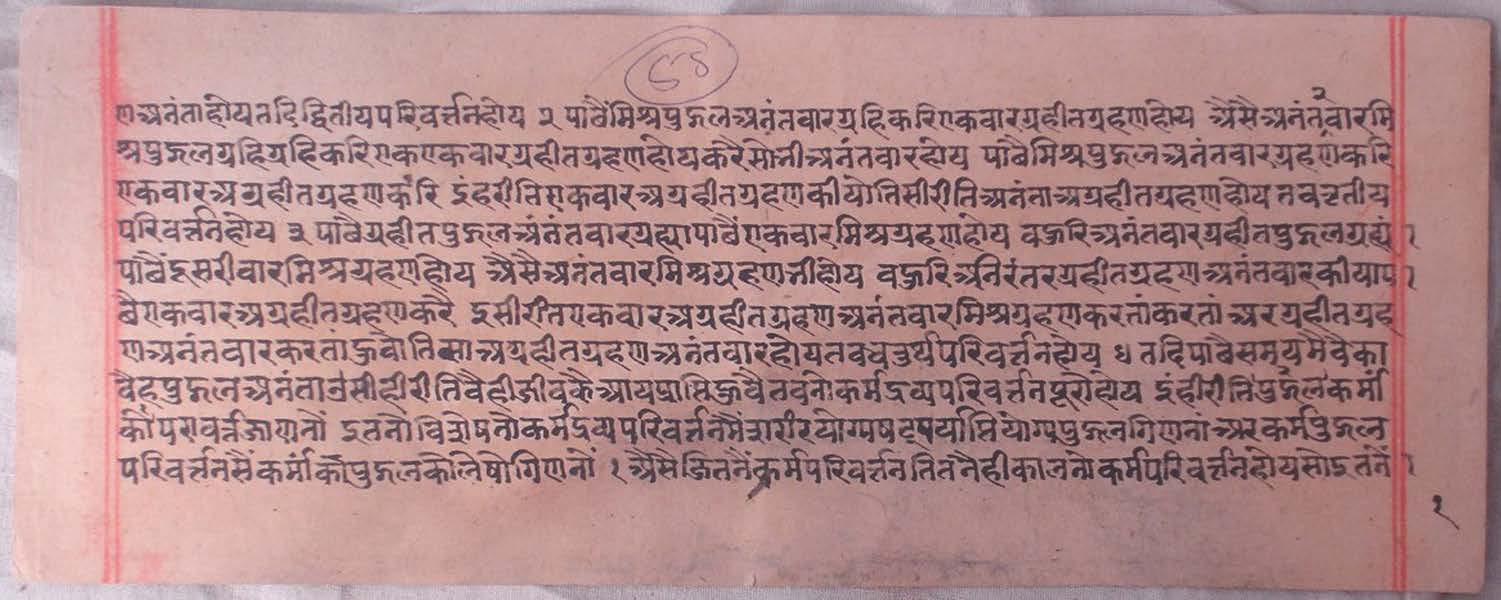 २
णअनंताहोयतदिद्वितीयपरिवर्त्तनहोय २ पाछैंमिश्रपुद्गलअनंतवारग्रहिकरिएकवारग्रहीतग्रहणहोय अैसैअनंतवारमि
श्रपुद्गलग्रहिग्रहिकरिएकएकवारग्रहीतग्रहणहोयकरैसोभीअनंतवारहोय पाछैमिश्रपुद्गलअनंतवारग्रहणकरि
एकवारअग्रहीतग्रहणकरि इंहरीतिएकवारअग्रहीतग्रहणकीयोतिसीरीतिअनंताअग्रहीतग्रहणहोय तबतृतीय
परिवर्त्तनहोय ३ पाछैग्रहीतपुद्गलअनंतवारग्रह्यापाछैंएकवारमिश्रग्रहणहोय बहुरिअनंतवारग्रहीतपुद्गलग्रह्यं
पाछैंदूसरीवारमिश्रग्रहणहोय अैसैअनंतवारमिश्रग्रहणभीहोय बहुरिअनिरंतरग्रहीतग्रहणअनंतवारकीयापा
छैएकवारअग्रहीतग्रहणकरै इसीरीतएकवारअग्रहीतग्रहणअनंतवारमिश्रग्रहणकरतांकरतां अरग्रहीतग्रह
णअनंतवारकरतांहुवोतिसाअग्रहीतग्रहणअनंतवारहोयतबचतुर्थपरिवर्त्तनहोय ४ तदिपाछैसमयमैवेका
वैहपुद्गलअनंताउसीहीरीतिवैहीजीवकैआयप्राप्तिहुवैतवनोकर्मद्रव्यपरिवर्त्तनपूरोहोय इंहीरीतिपुद्गलकर्मा
कोपरावर्त्तजाणनों इतनोविशेषनोकर्मद्रव्यपरिवर्त्तनमैंशरीरयोग्यषट्पर्याप्तियोग्यपुद्गलगिणनांअरकर्मपुद्गल
परिवर्त्तनसैंकर्मांकोपुद्गलकोलेषोगिणनों । अैसैजितनैंकर्मपरिवर्त्तनतितनैहीकालनोकर्मपरिवर्त्तनहोयसोइतनें
२